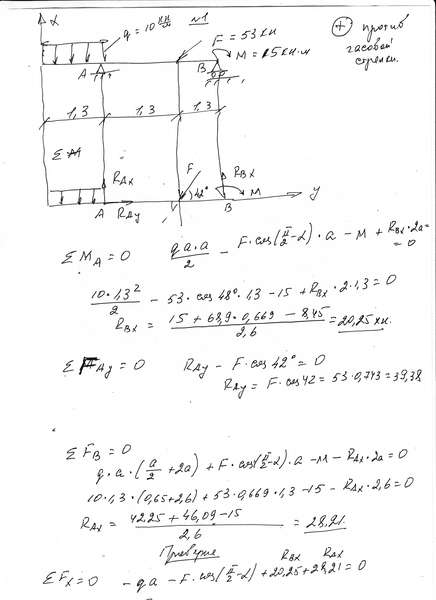 x
q = 10 кн/м
№1
F = 53 кн
M = 15 кн·м
+ против
часовой
стрелки.
A
B
1,3
1,3
1,3
RAx
F
RBx
42°
M
A
RAy
B
y
Σ MA = 0 qa·a/2 - F·cos(π/2-α)·a - M + RBx·2a = 0
10·1,3²/2 - 53·cos48°·1,3 - 15 + RBx·2·1,3 = 0
RBx = (15 + 68,9·0,669 - 8,45)/2,6 = 20,25 кн.
Σ FAy = 0 RAy - F·cos42° = 0
RAy = F·cos42 = 53·0,743 = 39,38
Σ FB = 0
q·a·(a/2 + 2a) + F·cos(π/2-α)·a - M - RAx·2a = 0
10·1,3·(0,65+2,6) + 53·0,669·1,3 - 15 - RAx·2,6 = 0
RAx = (42,25 + 46,09 - 15)/2,6 = 28,21.
RBx RAx
ΣFx = 0 -qa - F·cos(π/2-α) + 20,25 + 28,21 = 0